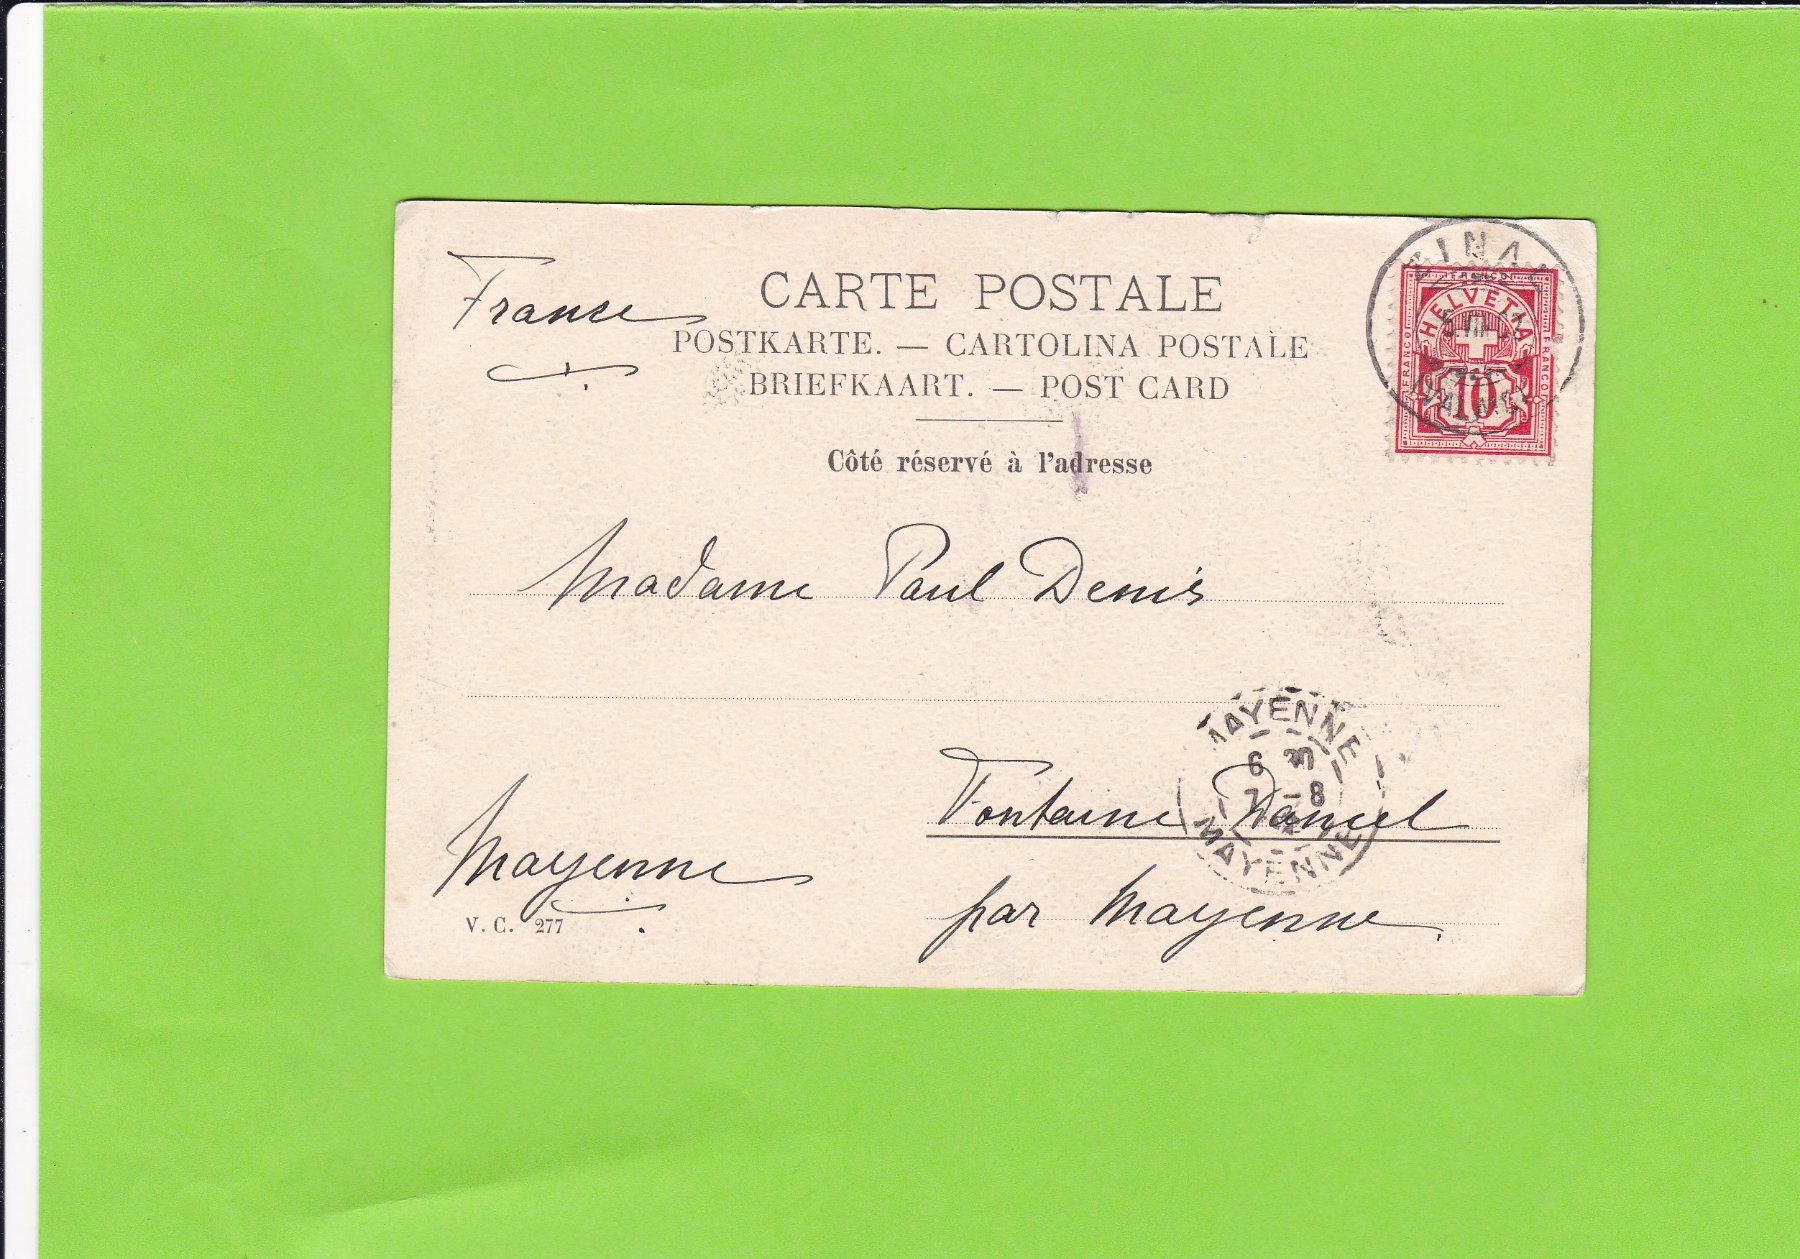 France
CARTE POSTALE
POSTKARTE. — CARTOLINA POSTALE
BRIEFKAART. — POST CARD
Côté réservé à l'adresse
FRANCO
HELVETIA
FRANCO
FRANCO
10
ZINAL
VIII
Madame Paul Denis
MAYENNE
6
7 -8
MAYENNE
Fontaine Daniel
par Mayenne
Mayenne
V. C. 277